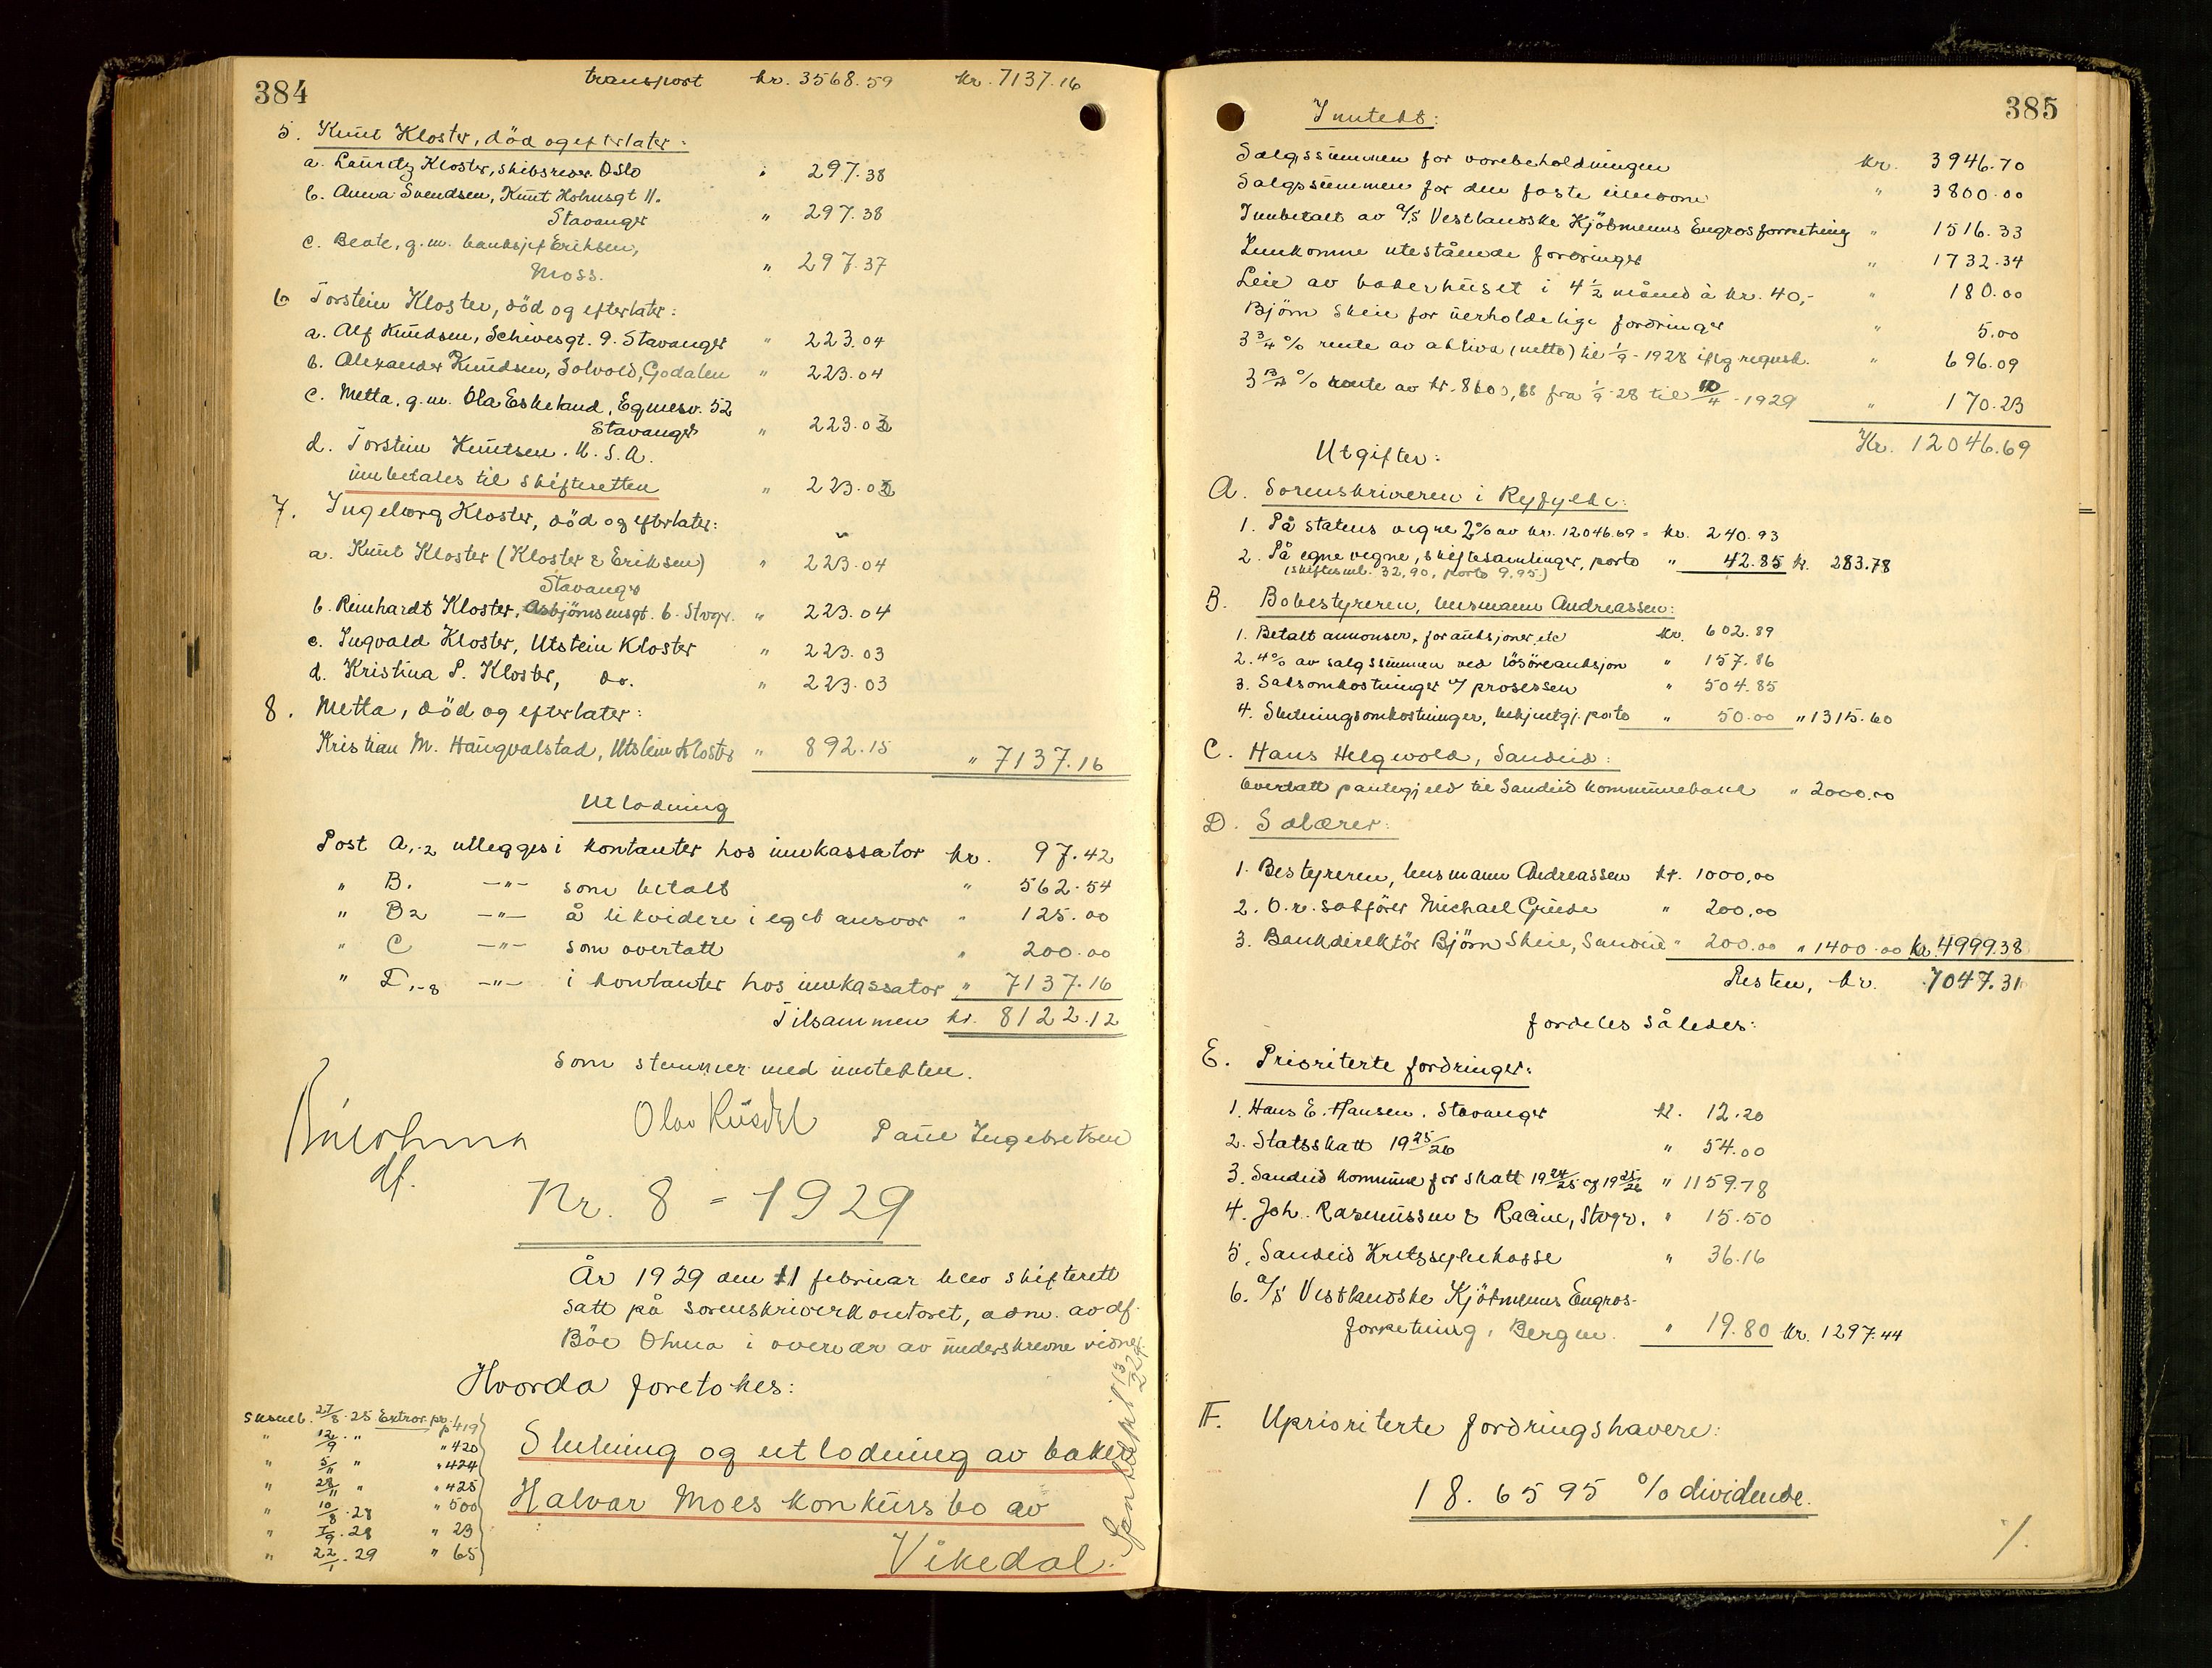 384
transport kr. 3568.59 kr. 7137.16
5. Knut Kloster, död og efterlater:
a. Lauritz Kloster, skibsreder Oslo " 297.38
b. Anna Svendsen, Knut Holmsgt 11.
Stavanger " 297.38
c. Beate, g.m. banksjef Eriksen,
Moss. " 297.37
6 Torstein Kloster, död og efterlater:
a. Alf Knudsen, Schivesgt. 9. Stavanger " 223.04
b. Alexander Knudsen, Solvold, Godalen " 223.04
c. Metta, g.m. Ola Eskeland, Egnesv. 52
Stavanger " 223.03
d. Torstein Knutsen. U.S.A.
innbetales til skifteretten " 223.03
7. Ingeborg Kloster, död og efterlater:
a. Knut Kloster (Kloster & Eriksen) " 223.04
Stavanger
b. Reinhardt Kloster, Asbjörnsensgt. 6. Stvgr. " 223.04
c. Ingvald Kloster, Utstein Kloster " 223.03
d. Kristina S. Kloster, do. " 223.03
8. Metta, död og efterlater:
Kristian M. Haugvalstad, Utstein Kloster " 892.15 " 7137.16
Utlodning
Post A,-2 utlegges i kontanter hos innkassator kr. 97.42
" B. -"- som betalt " 562.54
" B2 -"- å likvidere i eget ansvar " 125.00
" C -"- som overtatt " 200.00
" I,-8 -"- i kontanter hos innkassator " 7137.16
Tilsammen kr. 8122.12
som stemmer med inntekten.
Böe Ohma
df.
Olav Risdal
Paul Ingebretsen
Nr. 8 - 1929
År 1929 den 11 februar blev skifterett
satt på sorenskriverkontoret, adm. av df.
Böe Ohma i overvær av underskrevne vidner
Hvorda foretokes:
Sksmlb. 27/8.25 Extror. pr. p419
" 12/9 " " 420
" 5/11 " " 424
" 28/11 " " 425
" 10/8.28 " 500
" 1/9.28 " 23
" 22/1.29 " 65
Slutning og utlodning av baker
Halvar Moes konkursbo av
Vikedal.
385
Inntekt:
Salgssummen for varebeholdningen kr. 3946.70
Salgssummen for den faste eiendom " 3800.00
Innbetalt av A/S Vestlandske Kjöbmenns Engrosforretning " 1516.33
Innkomne utestående fordringer " 1732.34
Leie av bakerhuset i 4 1/2 måned à kr. 40,- " 180.00
Björn Skeie for uerholdelige fordringer " 5.00
3 3/4 % rente av aktiva (netto) til 1/9-1928 iflg regnsk. " 696.09
3 3/4 % rente av kr. 8600,88 fra 1/9-28 til 10/4-1929 " 170.23
Kr. 12046.69
Utgifter:
A. Sorenskriveren i Ryfylke:
1. På statens vegne 2% av kr. 12046.69 = kr. 240.93
2. På egne vegne, skiftesamlinger, porto " 42.85 kr. 283.78
(skiftesml. 32,90, porto 9.95)
B. Bobestyreren, lensmann Andreassen:
1. Betalt annonser, for auksjoner, etc kr. 602.89
2. 4% av salgssummen ved lösöreauksjon " 157.86
3. Saksomkostninger v/ prosessen " 504.85
4. Slutningsomkostninger, bekjentgj. porto " 50.00 " 1315.60
C. Hans Helgevold, Sandeid:
Overtatt pantegjeld til Sandeid kommunebank " 2000.00
D. Salærer:
1. Bestyreren, lensmann Andreassen kr. 1000,00
2. O.r. sakförer Michael Grude " 200,00
3. Bankdirektör Björn Skeie, Sandeid " 200.00 " 1400.00 kr. 4999.38
Resten, kr. 7047.31
fordeles således:
E. Prioriterte fordringer:
1. Hans E. Hansen, Stavanger kr. 12.20
2. Statsskatt 1925/26 " 54.00
3. Sandeid kommune for skatt 1924/25 og 1925/26 " 1159.78
4. Joh. Rasmussen & Racine, Stvgr. " 15.50
5. Sandeid Kretssykekasse " 36.16
6. A/S Vestlandske Kjöbmenns Engros-
forretning, Bergen. " 19.80 kr. 1297.44
F. Uprioriterte fordringshavere:
18.6595 % dividende.
/.